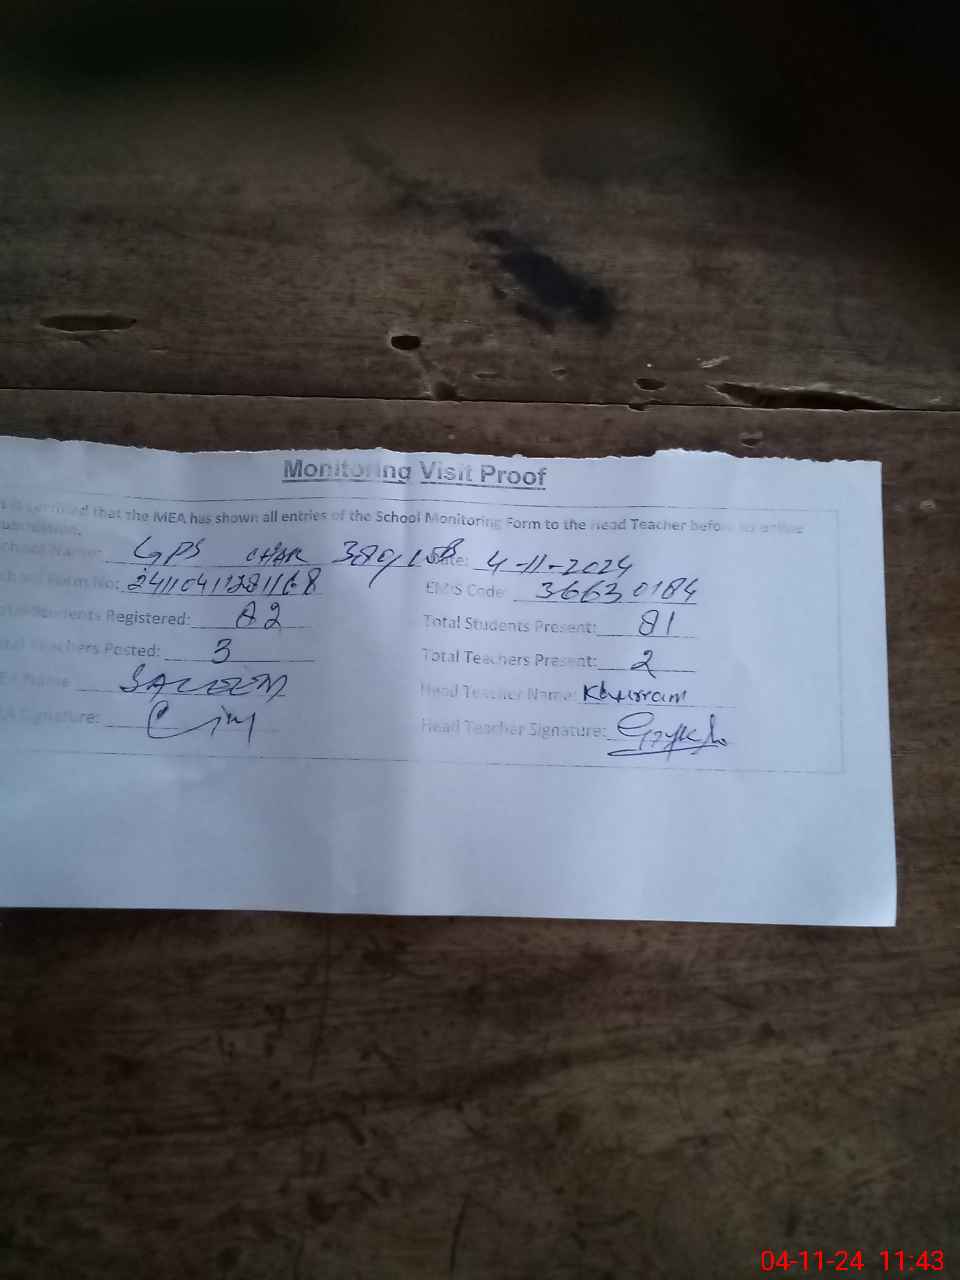 Monitoring Visit Proof
that the MEA has shown all entries of the School Monitoring Form to the Head Teacher before
School Name: GPS CHAK 389/ Date: 4-11-2024
Form No: EMIS Code: 36630184
Students Registered: 82 Total Students Present: 81
Teachers Posted: 3 Total Teachers Present: 2
Name SALEEM Head Teacher Name: Khurram
Signature: Head Teacher Signature:
04-11-24 11:43